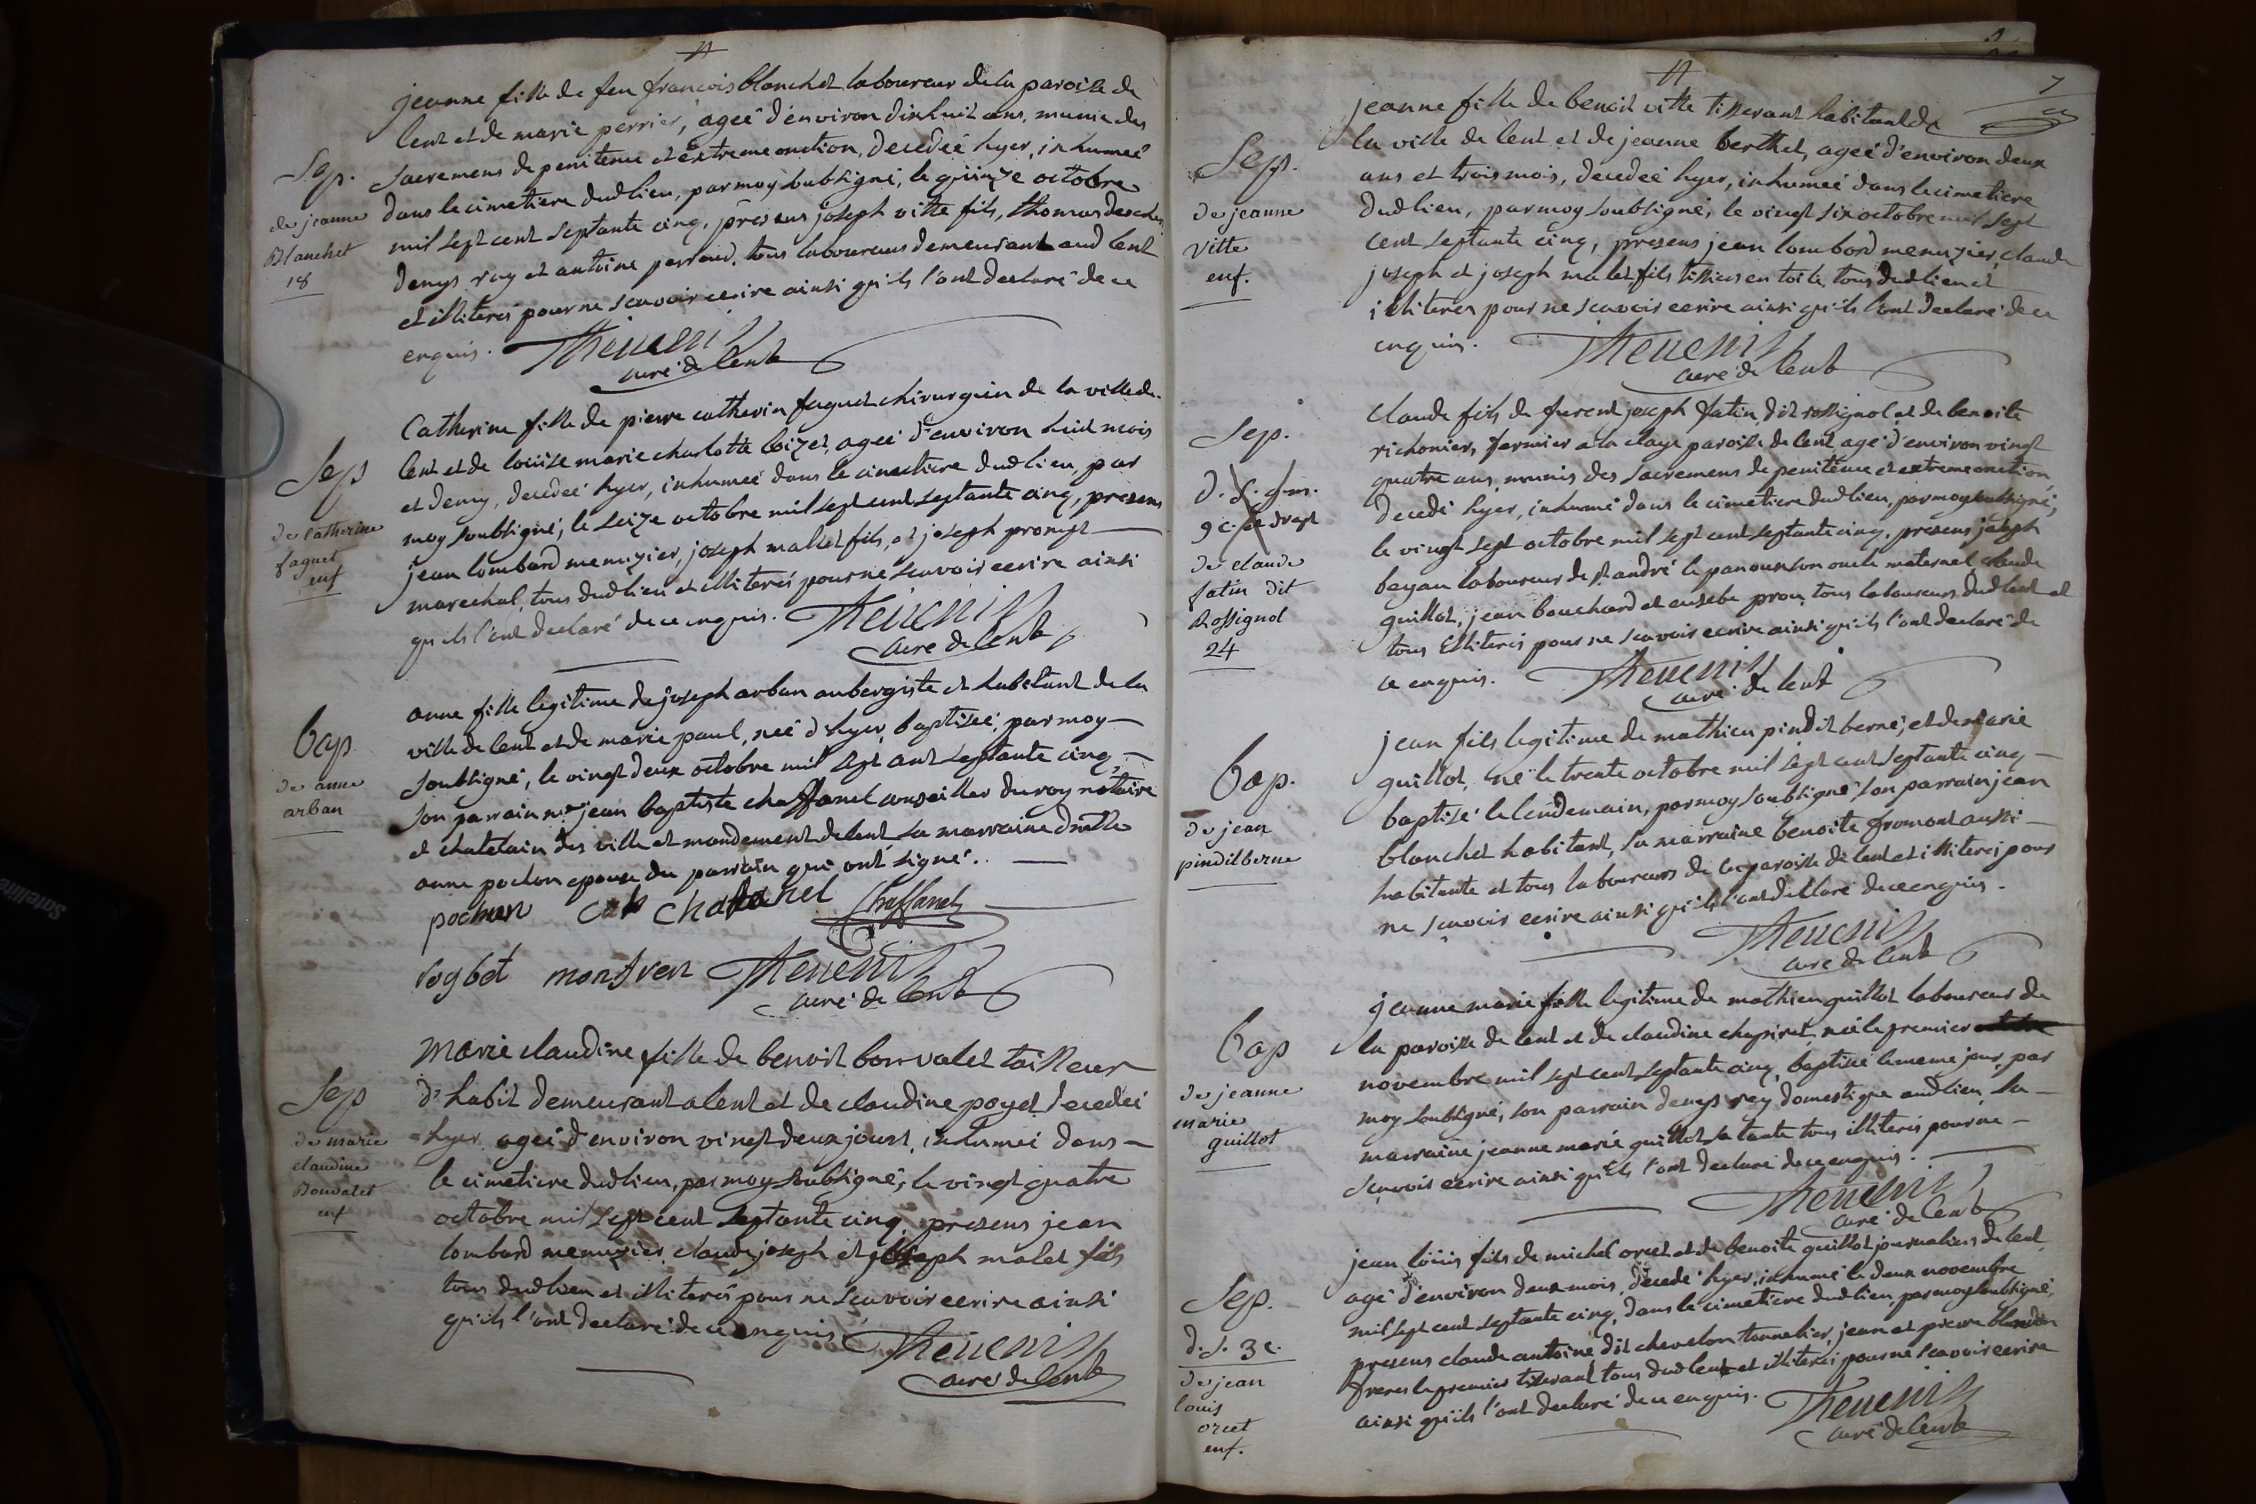 Sep.
de jeanne
Blanchet
18
jeanne fille de feu francois blanchet laboureur de la paroisse de
lent et de marie perrier, ageé d'environ dixhuit ans, munie des
sacremens de penitence et extreme onction, decedeé hyer, inhumeé
dans le cimetiere dudlieu, par moy soubsigné, le quinze octobre
mil sept cent septante cinq, presens joseph vitte fils, thomas
denys roy et antoine perraud, tous laboureurs demeurant aud lent
et illiterés pour ne scavoir ecrire ainsi qu'ils l'ont declaré de ce
enquis. Thevenin
curé de lent
Sep
de catherine
faguet
enf
Catherine fille de pierre catherin faguet chirurgien de la ville de
lent et de loüise marie charlotte loizet, ageé d'environ huit mois
et demy, decedeé hyer, inhumeé dans le cimetiere dudlieu, par
moy soubsigné, le seize octobre mil sept cent septante cinq, presens
jean lombard menuzier, joseph mallet fils, et joseph prompt
marechal, tous dudlieu et illiterés pour ne scavoir ecrire ainsi
qu'ils l'ont declaré de ce enquis. Thevenin
curé de lent
bap
de anne
arban
anne fille legitime de joseph arban aubergiste et habitant de la
ville de lent et de marie paul, neé d'hyer, baptiseé, par moy
soubsigné, le vingt deux octobre mil sept cent septante cinq,
son parrain mr. jean baptiste chaffanel conseiller du roy notaire
et chatelain des ville et mandement de lent, sa marraine dmlle
anne pochon epouse du parrain qui ont signé.
pochon chafanel Chaffanel
rogbet monfren Thevenin
curé de lent
Sep
de marie
claudine
Bonvalet
enf
Marie claudine fille de benoit bonvalet tailleur
d'habit demeurant a lent et de claudine poyet decedeé
hyer, ageé d'environ vingt deux jours, inhumeé dans
le cimetiere dudlieu, par moy soubsigné, le vingt quatre
octobre mil sept cent septante cinq, presens jean
lombard menuzier, claude joseph et joseph malet fils
tous dudlieu et illiterés pour ne scavoir ecrire ainsi
qu'ils l'ont declaré de ce enquis. Thevenin
curé de lent
7
Sep.
de jeanne
vitte
enf.
jeanne fille de benoit vitte tisserant habitant de
la ville de lent et de jeanne berthet, ageé d'environ deux
ans et trois mois, decedeé hyer, inhumeé dans le cimetiere
dudlieu, par moy soubsigné, le vingt six octobre mil sept
cent septante cinq, presens jean lombard menuzier, claude
joseph et joseph malet fils tissiers en toile, tous dudlieu et
illiterés pour ne scavoir ecrire ainsi qu'ils l'ont declaré de ce
enquis. Thevenin
curé de lent
Sep.
de claude
fatin dit
Rossignol
24
Claude fils de furent joseph fatin dit rossignol et de benoite
richonier, fermier a la claye paroisse de lent agé d'environ vingt
quatre ans, munis des sacremens de penitence et extreme onction,
decedé hyer, inhumé dans le cimetiere dudlieu, par moy soubsigné,
le vingt sept octobre mil sept cent septante cinq, presens joseph
bejan laboureur de st andré le panoux son oncle maternel, claude
guillot, jean bouchard et eusebe prou, tous laboureurs dud lent et
tous illiterés pour ne scavoir ecrire ainsi qu'ils l'ont declaré de
ce enquis. Thevenin
curé de lent
bap.
de jean
pinditberne
jean fils legitime de mathieu pindit berne, et de marie
guillot, né le trente octobre mil sept cent septante cinq
baptisé le lendemain, par moy soubsigné son parrain jean
blanchet habitant, sa marraine benoite fromont aussi
habitante et tous laboureurs de la paroisse de lent et illiterés pour
ne scavoir ecrire ainsi qu'ils l'ont declaré de ce enquis.
Thevenin
curé de lent
bap
de jeanne
marie
guillot
jeanne marie fille legitime de mathieu guillot laboureur de
la paroisse de lent et de claudine chapiret, neé le premier
novembre mil sept cent septante cinq, baptiseé le meme jour, par
moy soubsigné, son parrain denys rey domestique audlieu, sa
marraine jeanne marie guillot sa tante tous illiterés pour ne
scavoir ecrire ainsi qu'ils l'ont declaré de ce enquis.
Thevenin
curé de lent
Sep.
d. s. 3 c.
de jean
louis
orcet
enf.
jean loüis fils de michel orcet et de benoite guillot journaliers de lent
agé d'environ deux mois, decedé hyer, inhumé le deux novembre
mil sept cent septante cinq, dans le cimetiere dudlieu, par moy soubsigné,
presens claude antoine dit chevelon tonnelier, jean et pierre blondon
freres le premier tisserant tous dud lent et illiterés pour ne scavoir ecrire
ainsi qu'ils l'ont declaré de ce enquis. Thevenin
curé de lent